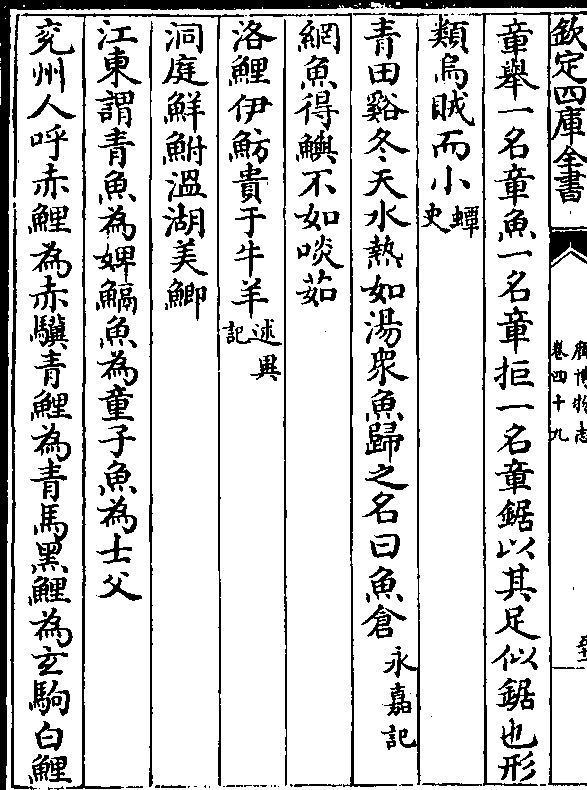 欽定四庫全書
廣博物志
卷四十九
章舉一名章魚一名章拒一名章鋸以其足似鋸也形
類烏賊而小蟫史
青田谿冬天水熱如湯衆魚歸之名曰魚倉永嘉記
網魚得鱮不如啖茹
洛鯉伊魴貴于牛羊述異記
洞庭鮮鮒溫湖美鯽
江東謂青魚為婢魚為童子魚為士父
兖州人呼赤鯉為赤驥青鯉為青馬黑鯉為玄駒白鯉